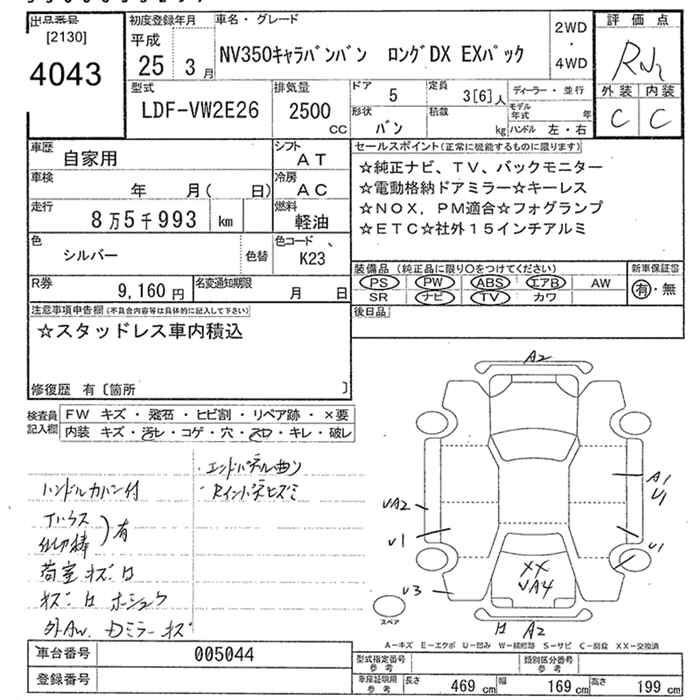 出品番号
[2130]
4043
初度登録年月
平成
25 3月
車名・グレード
NV350キャラバンバン ロングDX EXパック
2WD
・
4WD
評価点
外装 内装
C C
型式
LDF-VW2E26
排気量
2500
CC
ドア 5
定員 3[6]人
ディーラー・並行
形状 バン
積載 kg
モデル年式 年
ハンドル 左・右
車歴
自家用
シフト
AT
車検
年 月( 日)
冷房
AC
走行
8万5千993 km
燃料
軽油
色
シルバー
色替
色コード
K23
R券
9,160円
名変通知期限
月 日
セールスポイント(正常に機能するものに限る)
☆純正ナビ、TV、バックモニター
☆電動格納ドアミラー☆キーレス
☆NOX, PM適合☆フォグランプ
☆ETC☆社外15インチアルミ
装備品 (純正品に限り○をつけてください)
PS PW ABS エアB AW
SR ナビ TV カワ
新車保証書
有・無
後日品
注意事項申告欄(不具合内容等は具体的に記入して下さい)
☆スタッドレス車内積込
修復歴 有〔箇所 〕
検査員記入欄
FW キズ・飛石・ヒビ割・リペア跡・×要
内装 キズ・汚レ・コゲ・穴・スロ・キレ・破レ
エンドパネル曲リ
ハンドルカバー付
有
荷室キズ
外AW. Dミラーキズ
A2
A1
U1
UA2
U1
U1
U3
XX
UA4
A2
スペア
A-キズ E-エクボ U-凹み W-補修跡 S-サビ C-腐食 XX-交換済
車台番号
005044
登録番号
型式指定番号
参考
類別区分番号
参考
車庫証明用
参考
長さ 469cm 幅 169cm 高さ 199cm